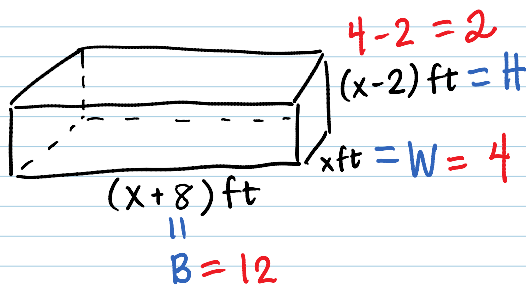 4-2 = 2
(x-2) ft = H
x ft = W = 4
(x+8) ft
=
B = 12